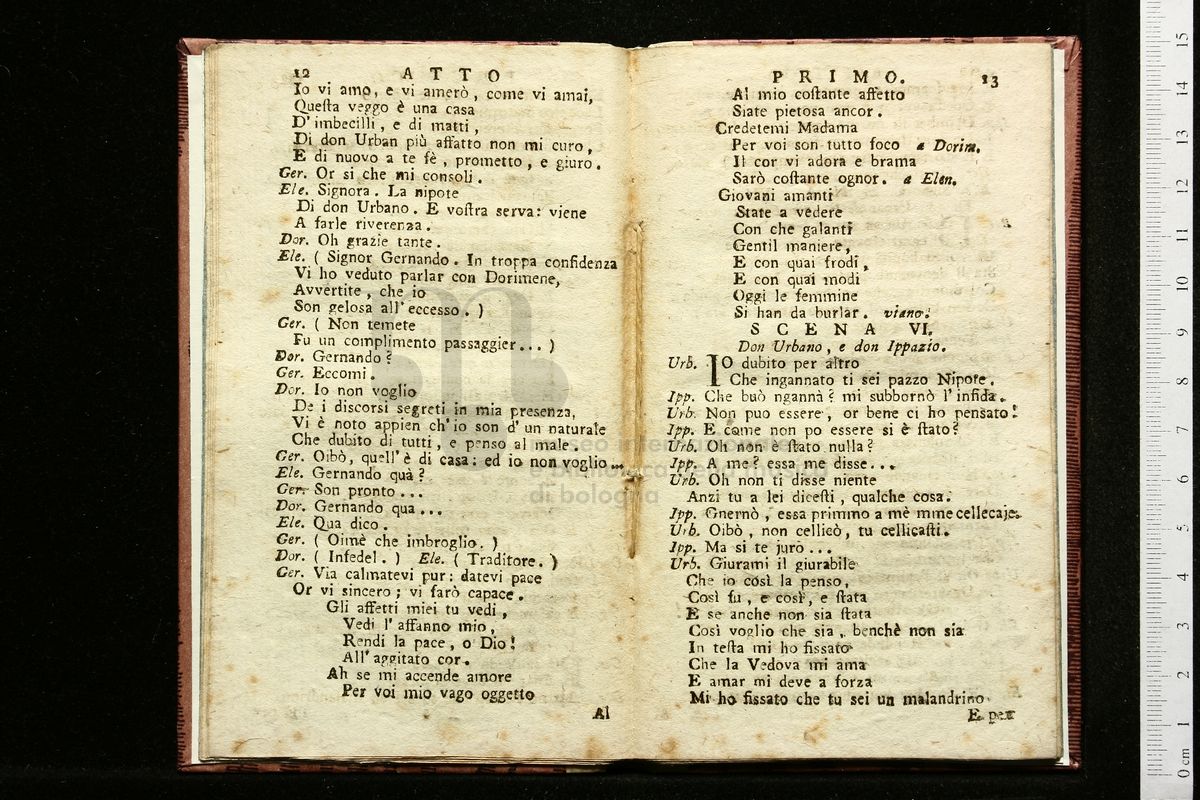 12 ATTO
Io vi amo, e vi amerò, come vi amai,
Queſta veggo è una casa
D' imbecilli, e di matti,
Di don Urban più affatto non mi curo,
E di nuovo a te fè, prometto, e giuro.
Ger. Or si che mi consoli.
Ele. Signora. La nipote
Di don Urbano. E voſtra serva: viene
A farle riverenza.
Dor. Oh grazie tante.
Ele. ( Signor Gernando. In troppa confidenza
Vi ho veduto parlar con Dorimene,
Avvertite, che io
Son gelosa all' eccesso. )
Ger. ( Non temete
Fu un complimento passaggier... )
Dor. Gernando?
Ger. Eccomi.
Dor. Io non voglio
De i discorsi segreti in mia presenza,
Vi è noto appien ch' io son d' un naturale
Che dubito di tutti, e penso al male.
Ger. Oibò, quell' è di casa: ed io non voglio...
Ele. Gernando quà?
Ger. Son pronto...
Dor. Gernando qua...
Ele. Qua dico.
Ger. ( Oimè che imbroglio. )
Dor. ( Infedel. ) Ele. ( Traditore. )
Ger. Via calmatevi pur: datevi pace
Or vi sincero; vi farò capace.
Gli affetti miei tu vedi,
Vedi l' affanno mio,
Rendi la pace, o Dio!
All' aggitato cor.
Ah se mi accende amore
Per voi mio vago oggetto
Al
PRIMO. 13
Al mio coſtante affetto
Siate pietosa ancor.
Credetemi Madama
Per voi son tutto foco a Dorim.
Il cor vi adora e brama
Sarò coſtante ognor. a Elen.
Giovani amanti
State a vedere
Con che galanti
Gentil maniere,
E con quai frodi,
E con quai modi
Oggi le femmine
Si han da burlar. viano.
SCENA VI.
Don Urbano, e don Ippazio.
Urb. IO dubito per altro
Che ingannato ti sei pazzo Nipote.
Ipp. Che buò ngannà? mi subbornò l' infida.
Urb. Non puo essere, or bene ci ho pensato!
Ipp. E come non po essere si è ſtato?
Urb. Oh non è ſtato nulla?
Ipp. A me? essa me disse...
Urb. Oh non ti disse niente
Anzi tu a lei diceſti, qualche cosa.
Ipp. Gnernò, essa primmo a mè mme cellecaje.
Urb. Oibò, non cellicò, tu cellicaſti.
Ipp. Ma si te juro...
Urb. Giurami il giurabile
Che io così la penso,
Così fu, e così, e ſtata
E se anche non sia ſtata
Così voglio che sia, benchè non sia
In teſta mi ho fissato
Che la Vedova mi ama
E amar mi deve a forza
Mi ho fissato che tu sei un malandrino
E per
museo internazionale
e biblioteca della musica
di bologna
0 cm 1 2 3 4 5 6 7 8 9 10 11 12 13 14 15